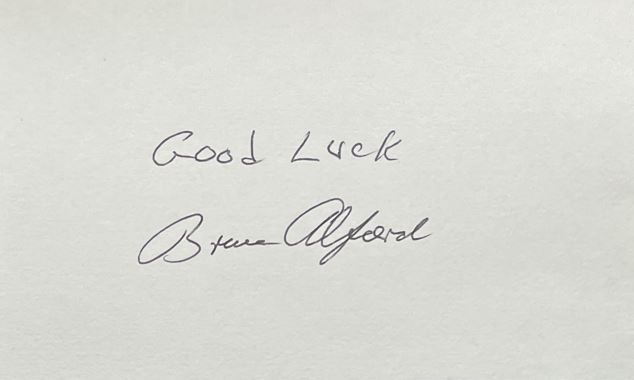 Good Luck
Bruce Alford